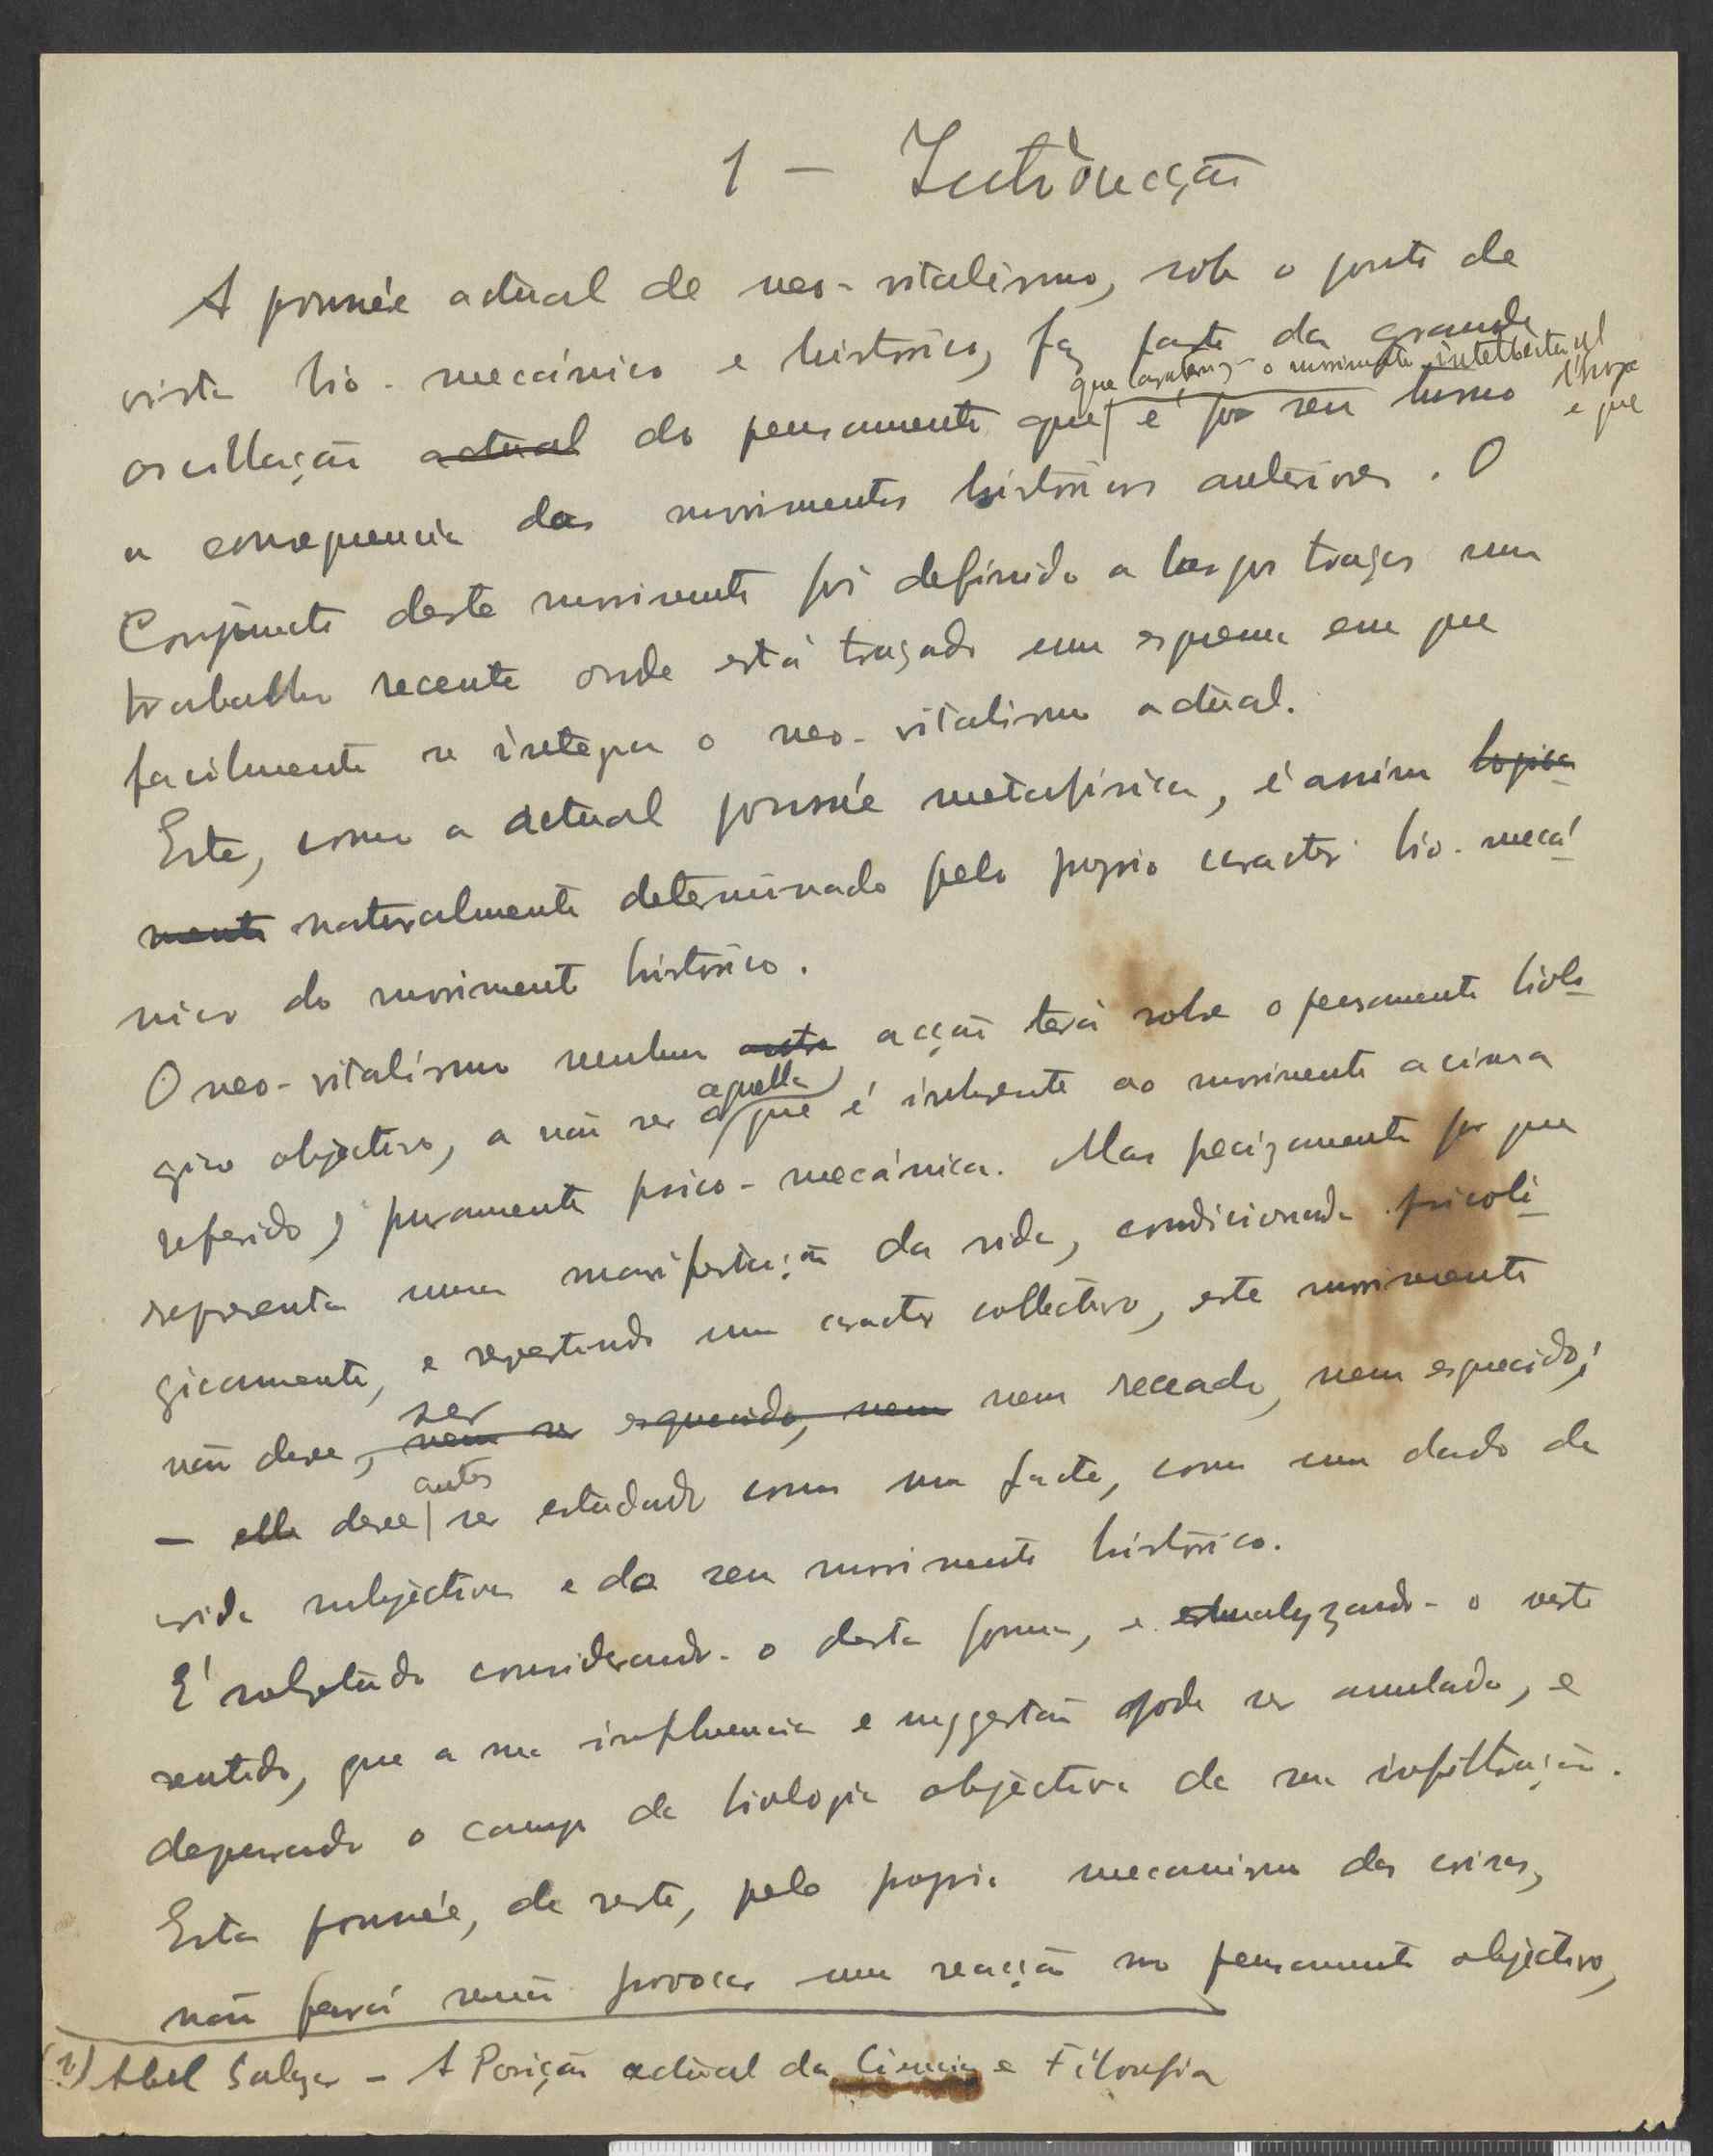 1 - Introducção
A poussée actual de neo-vitalismo, sob o ponto de
vista bio-mecánico e historico, faz parte da grande
que caracteriza o movimento intellectual
oscillação actual do pensamento que é por seu turno
e que
a consequencia dos movimentos históricos anteriores. O
Conjuncto deste movimento foi definido a largos traços num
trabalho recente onde está traçado um esquema em que
facilmente se integra o neo-vitalismo actual.
Este, como a actual poussée metafisica, é assim logica
mente naturalmente determinado pelo proprio caracter bio-mecá
nico do movimento histórico.
O neo-vitalismo nenhuma outra acção terá sobre o pensamento biolo
aquella
gico objectivo, a não ser a que é inherente ao movimento acima
referido, puramente psico-mecánica. Mas precizamente por que
representa uma manifestação da vida, condicionada psicoló
gicamente, e revestindo um caracter collectivo, este movimento
ser
não deve, nem ser esquecido, nem nem receado, nem esquecido;
antes
- elle deve ser estudado como um facto, como um dado da
vida subjectiva e do seu movimento histórico.
É sobretudo considerando-o desta forma, e analyzando-o neste
sentido, que a sua influencia e suggestão pode ser annulada, e
depurado o campo da biologia objectiva da sua infiltração.
Esta poussée, de resto, pelo proprio mecanismo das crises,
não fará senão provocar uma reacção no pensamento objectivo,
(1) Abel Salazar - A Posição actual da Ciencia e Filosofia